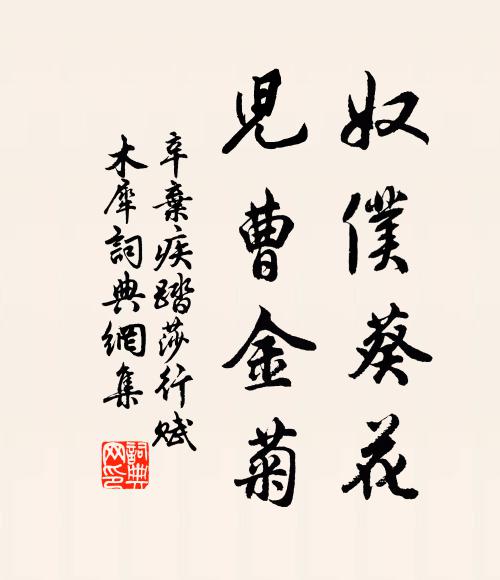 奴僕葵花
兒曹金菊
辛棄疾踏莎行賦
木犀詞典網集
詞典
网印